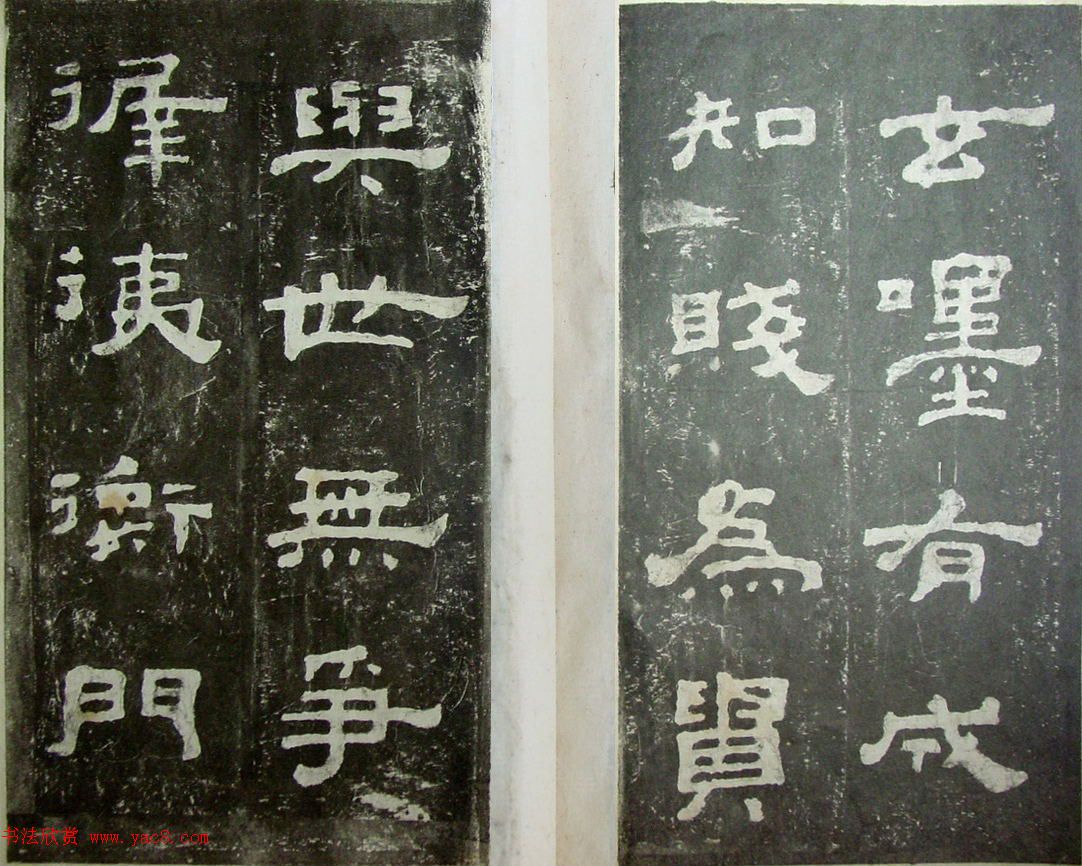 玄嚜有成
知賤為貴
與世無爭
徲𢓡衡門
书法欣赏 www.yac8.com